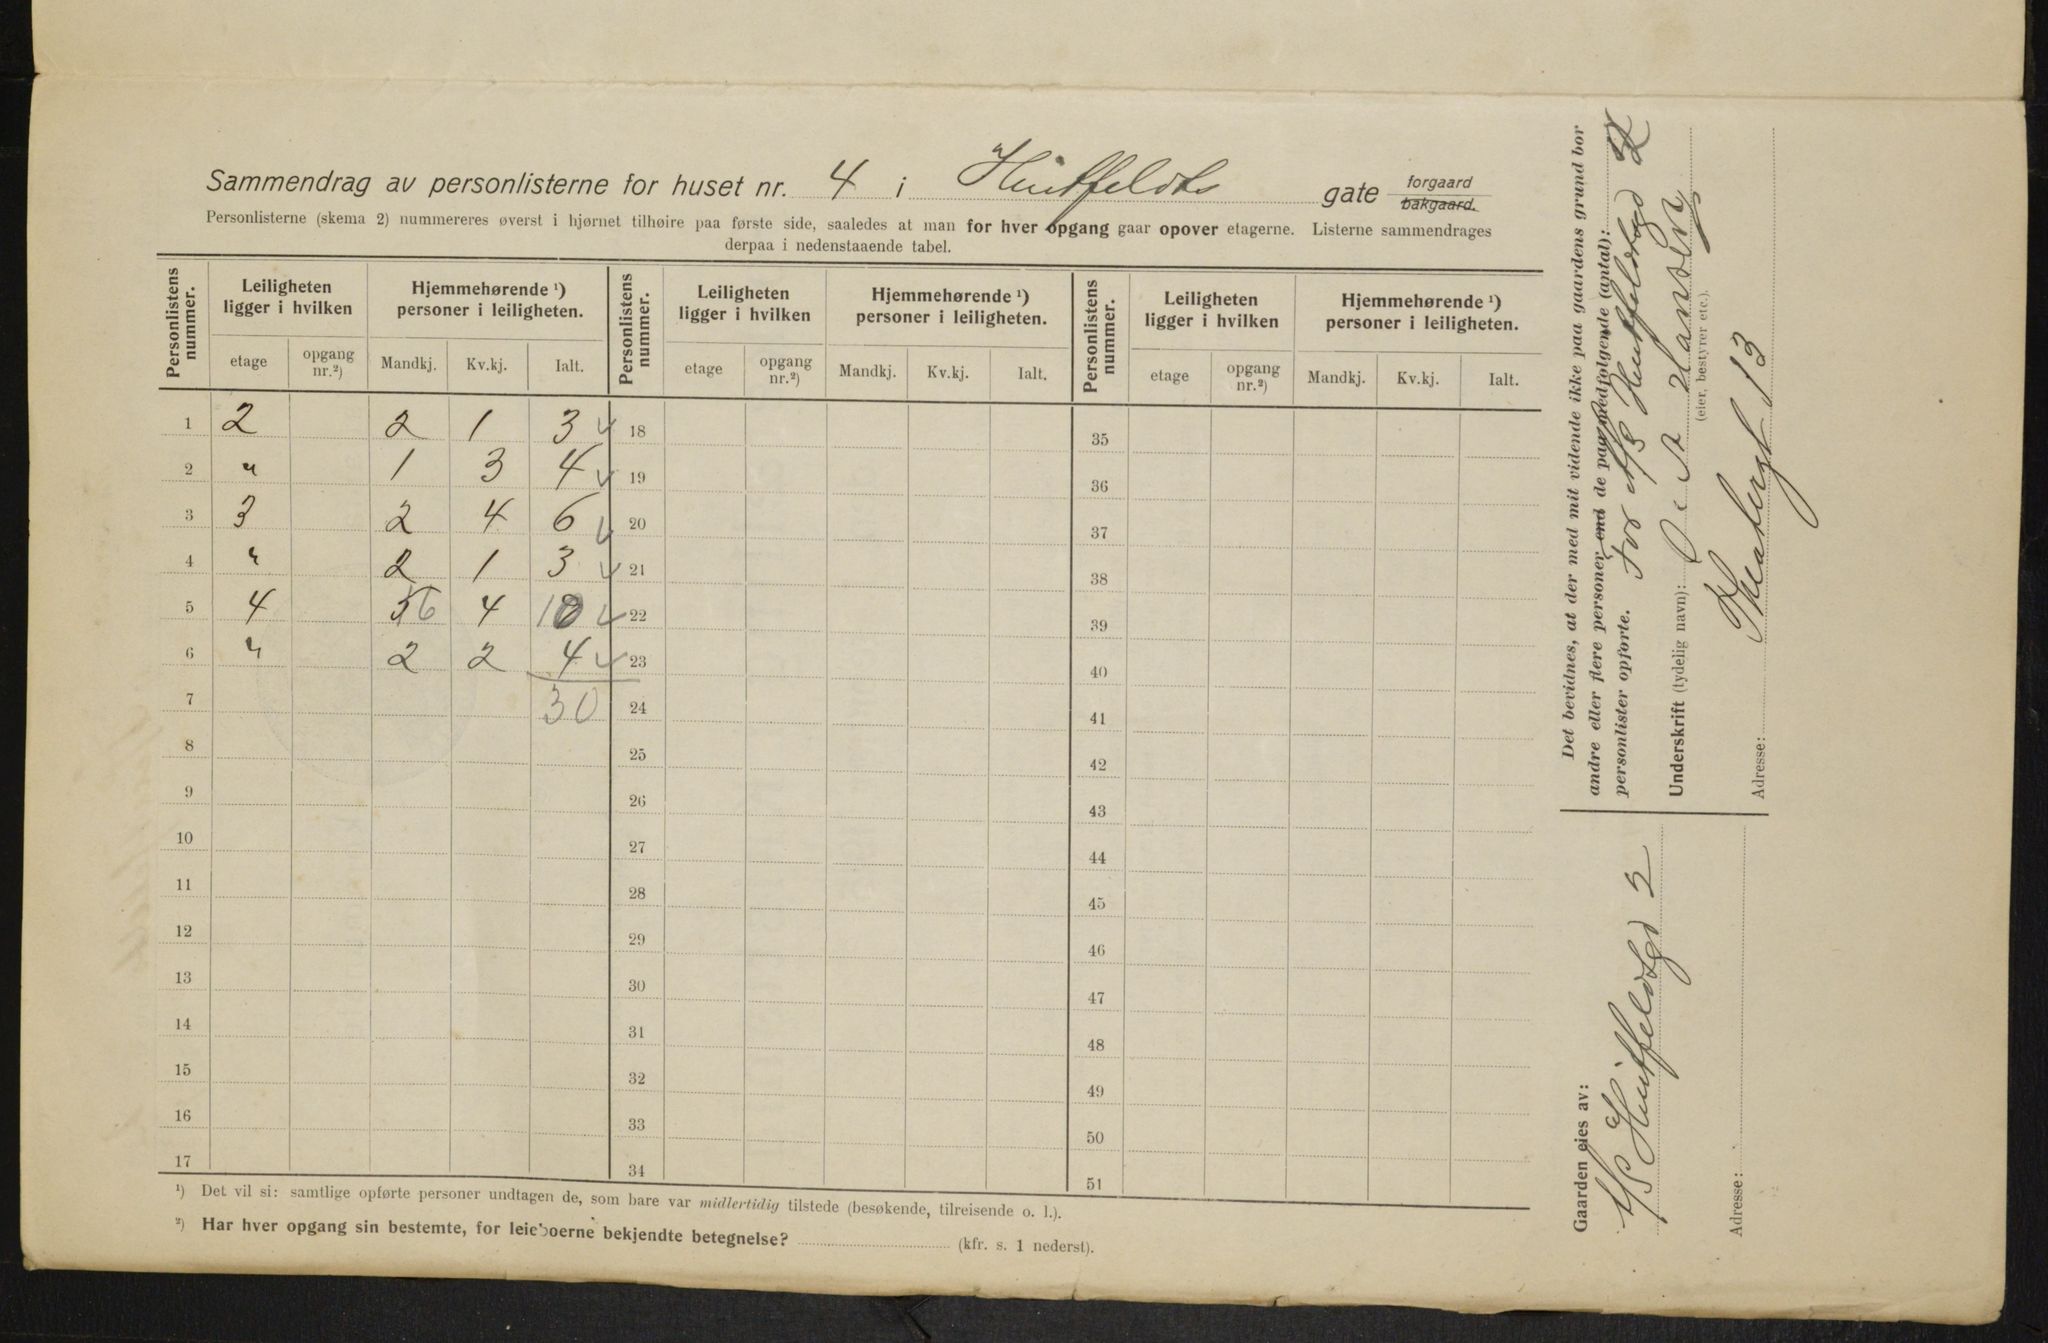 Sammendrag av personlisterne for huset nr. 4 i Huitfeldts gate forgaard
bakgaard.
Personlisterne (skema 2) nummereres øverst i hjørnet tilhøire paa første side, saaledes at man for hver opgang gaar opover etagerne. Listerne sammendrages
derpaa i nedenstaaende tabel.
Personlistens nummer. Leiligheten ligger i hvilken Hjemmehørende ¹) personer i leiligheten. Personlistens nummer. Leiligheten ligger i hvilken Hjemmehørende ¹) personer i leiligheten. Personlistens nummer. Leiligheten ligger i hvilken Hjemmehørende ¹) personer i leiligheten.
etage opgang nr.²) Mandkj. Kv.kj. Ialt. etage opgang nr.²) Mandkj. Kv.kj. Ialt. etage opgang nr.²) Mandkj. Kv.kj. Ialt.
1 2 2 1 3 18 35
2 " 1 3 4 19 36
3 3 2 4 6 20 37
4 " 2 1 3 21 38
5 4 6 4 10 22 39
6 " 2 2 4 23 40
7 30 24 41
8 25 42
9 26 43
10 27 44
11 28 45
12 29 46
13 30 47
14 31 48
15 32 49
16 33 50
17 34 51
¹) Det vil si: samtlige opførte personer undtagen de, som bare var midlertidig tilstede (besøkende, tilreisende o. l.).
²) Har hver opgang sin bestemte, for leieboerne bekjendte betegnelse? (kfr. s. 1 nederst).
Det bevidnes, at der med mit vidende ikke paa gaardens grund bor
andre eller flere personer end de paa medfølgende (antal):
personlister opførte. For A/S Huitfeldtsgd 2
Underskrift (tydelig navn): Hansen
(eier, bestyrer etc.).
Adresse: 13
Gaarden eies av:
A/S Huitfeldtsgd 2
Adresse: